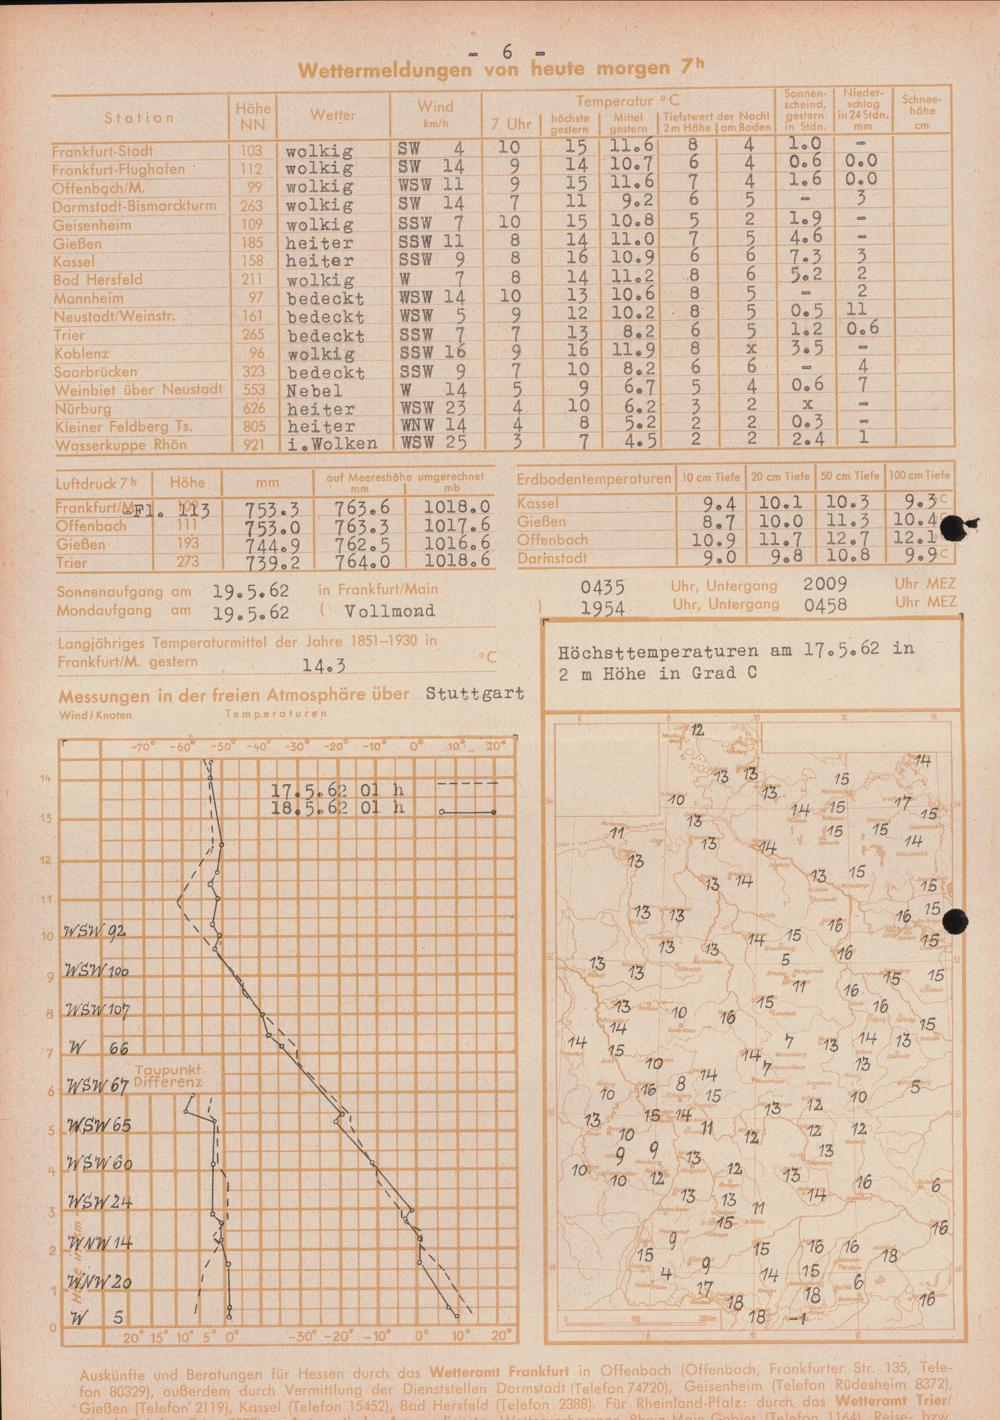 - 6 -
Wettermeldungen von heute morgen 7h
Station Höhe NN Wetter Wind km/h Temperatur °C Sonnenscheind. gestern in Stdn. Niederschlag in 24 Stdn. mm Schneehöhe cm
7 Uhr höchste gestern Mittel gestern Tiefstwert der Nacht 2 m Höhe am Boden
Frankfurt-Stadt 103 wolkig SW 4 10 15 11.6 8 4 1.0 -
Frankfurt-Flughafen 112 wolkig SW 14 9 14 10.7 6 4 0.6 0.0
Offenbach/M. 99 wolkig WSW 11 9 15 11.6 7 4 1.6 0.0
Darmstadt-Bismarckturm 263 wolkig SW 14 7 11 9.2 6 5 - 3
Geisenheim 109 wolkig SSW 7 10 15 10.8 5 2 1.9 -
Gießen 185 heiter SSW 11 8 14 11.0 7 5 4.6 -
Kassel 158 heiter SSW 9 8 16 10.9 6 6 7.3 3
Bad Hersfeld 211 wolkig W 7 8 14 11.2 8 6 5.2 2
Mannheim 97 bedeckt WSW 14 10 13 10.6 8 5 - 2
Neustadt/Weinstr. 161 bedeckt WSW 5 9 12 10.2 8 5 0.5 11
Trier 265 bedeckt SSW 7 7 13 8.2 6 5 1.2 0.6
Koblenz 96 wolkig SSW 16 9 16 11.9 8 x 3.5 -
Saarbrücken 323 bedeckt SSW 9 7 10 8.2 6 6 - 4
Weinbiet über Neustadt 553 Nebel W 14 5 9 6.7 5 4 0.6 7
Nürburg 626 heiter WSW 23 4 10 6.2 3 2 x -
Kleiner Feldberg Ts. 805 heiter WNW 14 4 8 5.2 2 2 0.3 -
Wasserkuppe Rhön 921 i.Wolken WSW 25 3 7 4.5 2 2 2.4 1
Luftdruck 7h Höhe mm auf Meereshöhe umgerechnet mm mb
Frankfurt/M.-Fl. 113 753.3 763.6 1018.0
Offenbach 111 753.0 763.3 1017.6
Gießen 193 744.9 762.5 1016.6
Trier 273 739.2 764.0 1018.6
Erdbodentemperaturen 10 cm Tiefe 20 cm Tiefe 50 cm Tiefe 100 cm Tiefe
Kassel 9.4 10.1 10.3 9.3 °C
Gießen 8.7 10.0 11.3 10.4
Offenbach 10.9 11.7 12.7 12.1
Darmstadt 9.0 9.8 10.8 9.9 °C
Sonnenaufgang am 19.5.62 in Frankfurt/Main 0435 Uhr, Untergang 2009 Uhr MEZ
Mondaufgang am 19.5.62 ( Vollmond ) 1954 Uhr, Untergang 0458 Uhr MEZ
Langjähriges Temperaturmittel der Jahre 1851–1930 in
Frankfurt/M. gestern 14.3 °C
Messungen in der freien Atmosphäre über Stuttgart
Wind / Knoten Temperaturen
-70° -60° -50° -40° -30° -20° -10° 0° 10° 20°
17.5.62 01 h
18.5.62 01 h
14
13
12
11
WSW 92
10
WSW 100
9
WSW 107
8
W 66
7
Taupunkt
Differenz
WSW 67
6
WSW 65
5
WSW 60
4
WSW 24
3
WNW 14
2
WNW 20
1
W 5
0
20° 15° 10° 5° 0° -30° -20° -10° 0° 10° 20°
Höchsttemperaturen am 17.5.62 in
2 m Höhe in Grad C
6 8 10 12 14
12
14
13 13 15
10 13 14 15 17 15
11 13 15 15
13 13 14 14
13 14 13 15 15
13 13 16 16 15
13 13 14 15 16 15
13 13 5 11 16 15 15
13 10 16 15 16 15
14 14 15 7 13 14 13
10 14 7 13
10 16 8 14 15 10 5
13 15 14 13 12
10 11 12 12 12
9 9 13 13
10 10 12 12 13 16 6
13 13 14
15 11 16
9 15 16 16 18
15 4 9 14 15 6
17 18 18 16
18 -1
Auskünfte und Beratungen für Hessen durch das Wetteramt Frankfurt in Offenbach (Offenbach, Frankfurter Str. 135, Tele-
fon 80329), außerdem durch Vermittlung der Dienststellen Darmstadt (Telefon 74720), Geisenheim (Telefon Rüdesheim 8372),
Gießen (Telefon 2119), Kassel (Telefon 15452), Bad Hersfeld (Telefon 2388). Für Rheinland-Pfalz: durch das Wetteramt Trier/